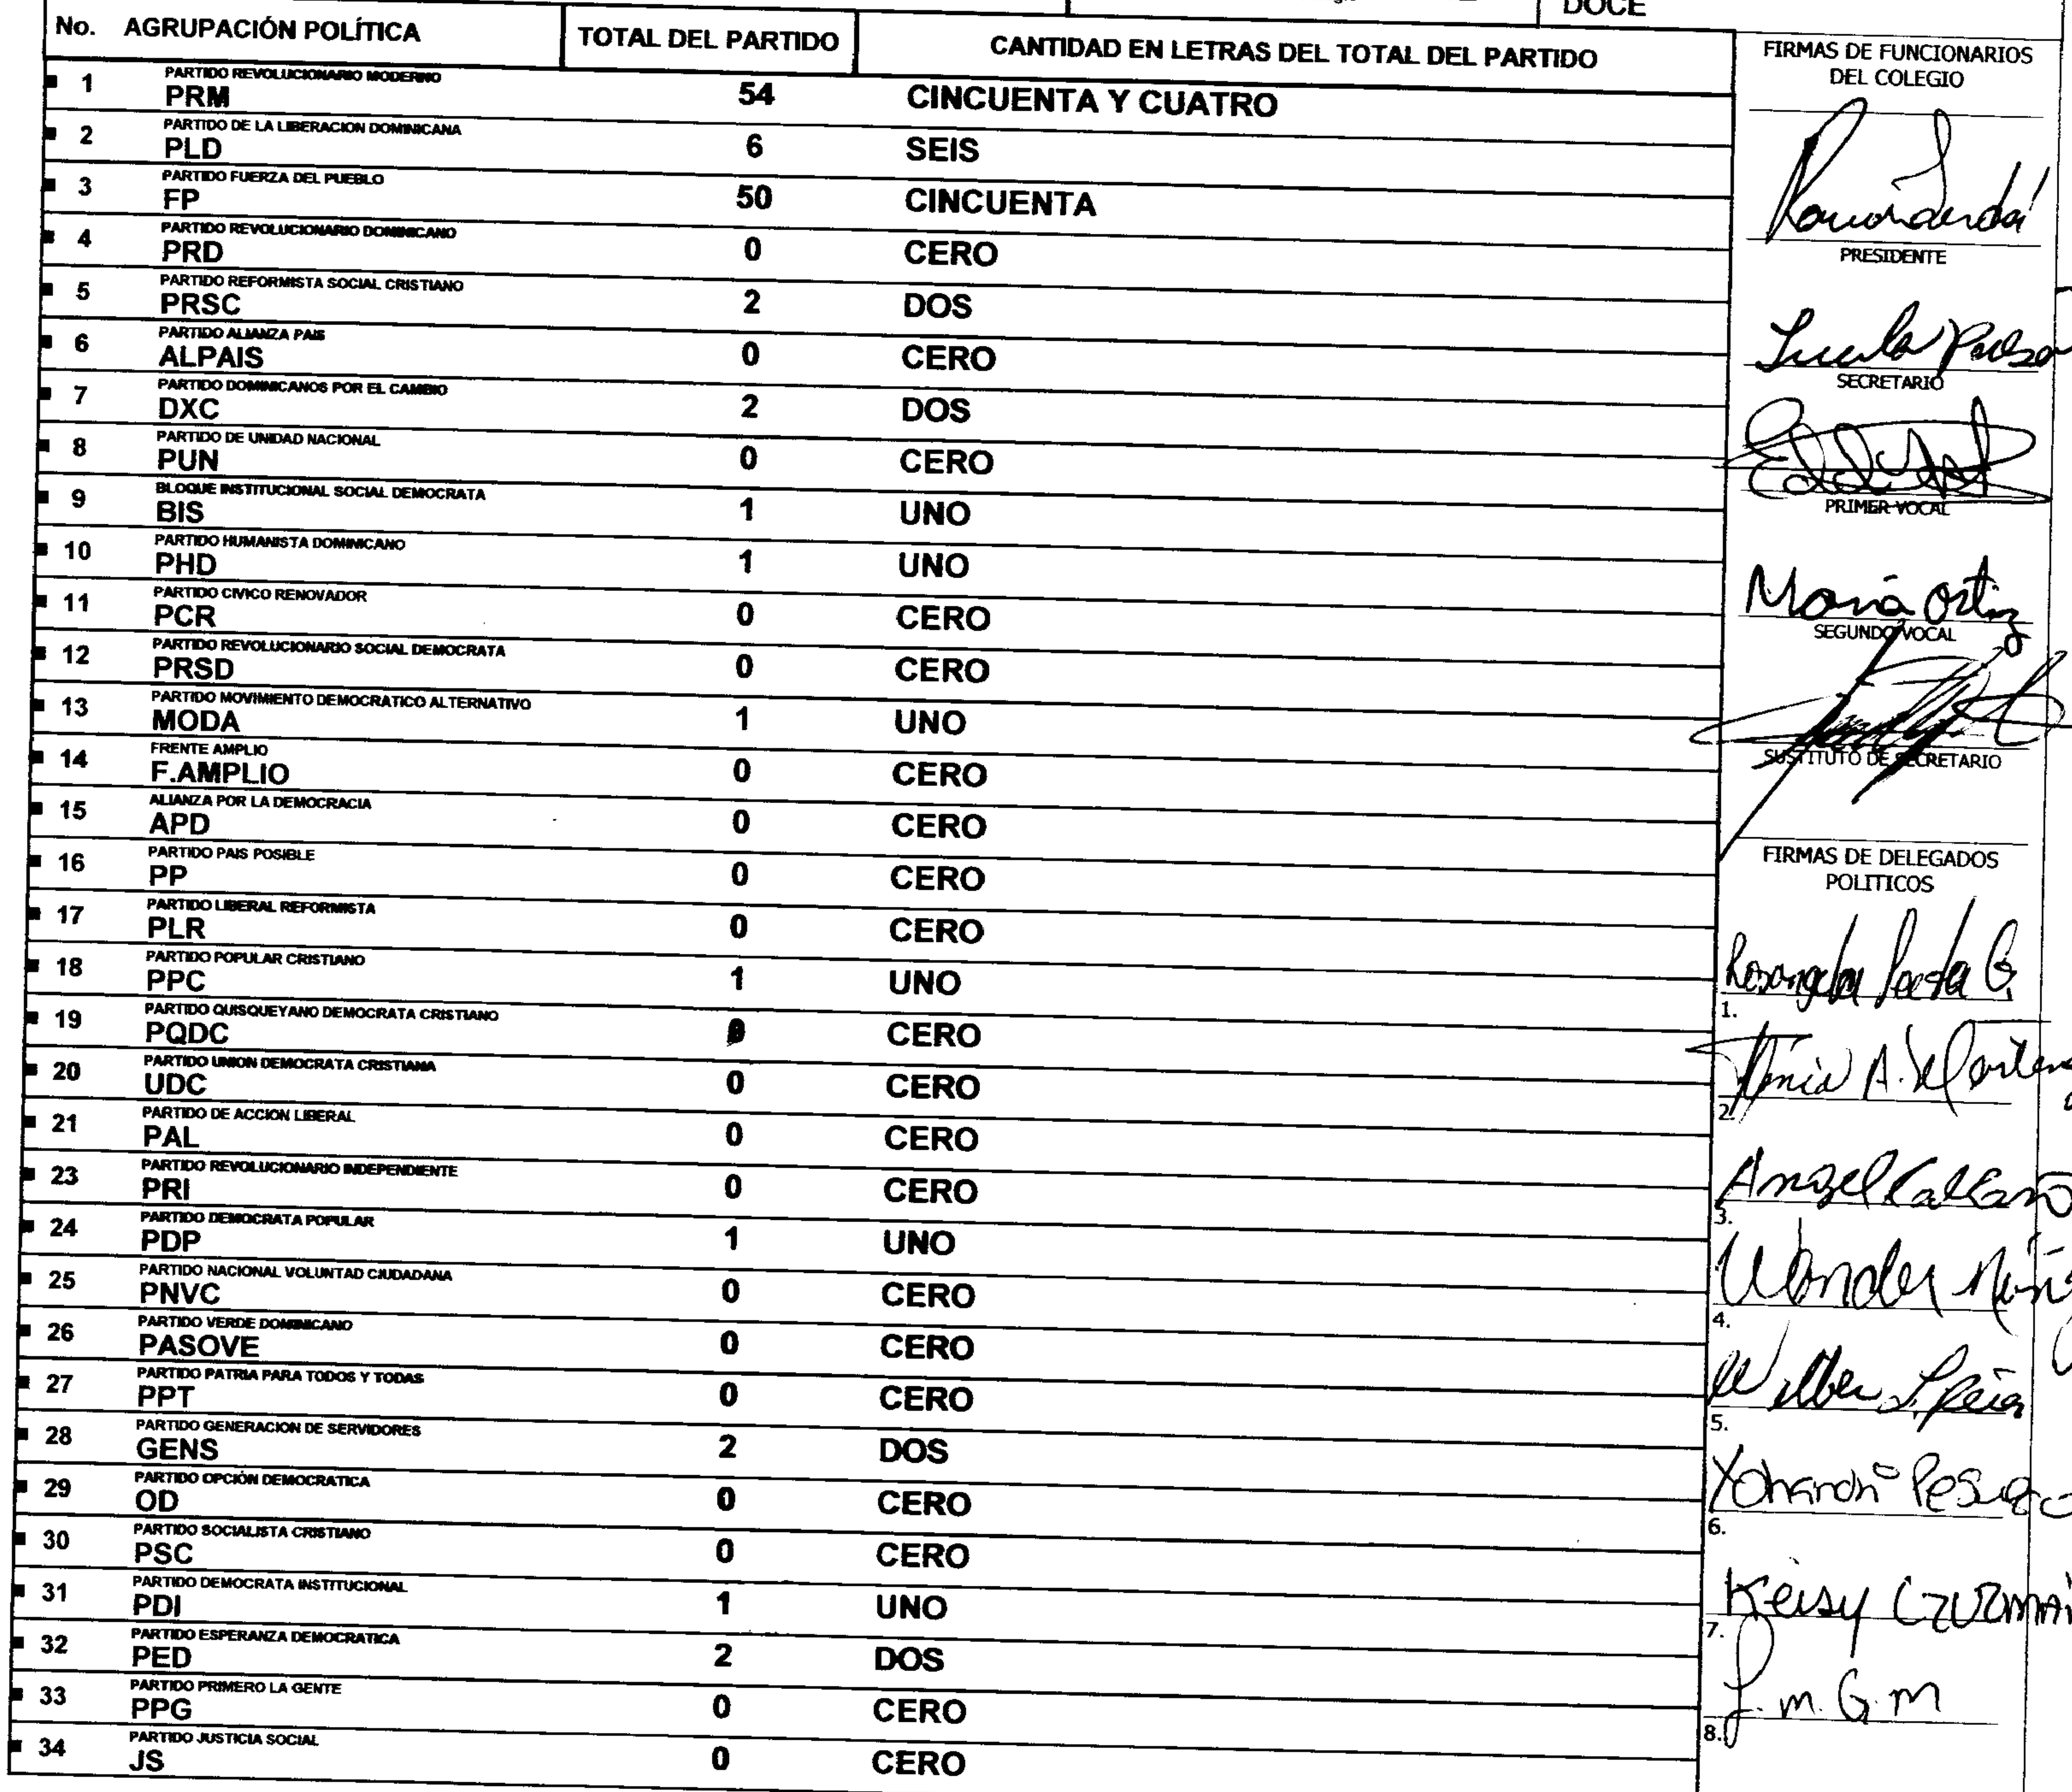 DOCE
No. AGRUPACIÓN POLÍTICA TOTAL DEL PARTIDO CANTIDAD EN LETRAS DEL TOTAL DEL PARTIDO
1 PARTIDO REVOLUCIONARIO MODERNO
PRM 54 CINCUENTA Y CUATRO
2 PARTIDO DE LA LIBERACION DOMINICANA
PLD 6 SEIS
3 PARTIDO FUERZA DEL PUEBLO
FP 50 CINCUENTA
4 PARTIDO REVOLUCIONARIO DOMINICANO
PRD 0 CERO
5 PARTIDO REFORMISTA SOCIAL CRISTIANO
PRSC 2 DOS
6 PARTIDO ALIANZA PAIS
ALPAIS 0 CERO
7 PARTIDO DOMINICANOS POR EL CAMBIO
DXC 2 DOS
8 PARTIDO DE UNIDAD NACIONAL
PUN 0 CERO
9 BLOQUE INSTITUCIONAL SOCIAL DEMOCRATA
BIS 1 UNO
10 PARTIDO HUMANISTA DOMINICANO
PHD 1 UNO
11 PARTIDO CIVICO RENOVADOR
PCR 0 CERO
12 PARTIDO REVOLUCIONARIO SOCIAL DEMOCRATA
PRSD 0 CERO
13 PARTIDO MOVIMIENTO DEMOCRATICO ALTERNATIVO
MODA 1 UNO
14 FRENTE AMPLIO
F.AMPLIO 0 CERO
15 ALIANZA POR LA DEMOCRACIA
APD 0 CERO
16 PARTIDO PAIS POSIBLE
PP 0 CERO
17 PARTIDO LIBERAL REFORMISTA
PLR 0 CERO
18 PARTIDO POPULAR CRISTIANO
PPC 1 UNO
19 PARTIDO QUISQUEYANO DEMOCRATA CRISTIANO
PQDC 0 CERO
20 PARTIDO UNION DEMOCRATA CRISTIANA
UDC 0 CERO
21 PARTIDO DE ACCION LIBERAL
PAL 0 CERO
23 PARTIDO REVOLUCIONARIO INDEPENDIENTE
PRI 0 CERO
24 PARTIDO DEMOCRATA POPULAR
PDP 1 UNO
25 PARTIDO NACIONAL VOLUNTAD CIUDADANA
PNVC 0 CERO
26 PARTIDO VERDE DOMINICANO
PASOVE 0 CERO
27 PARTIDO PATRIA PARA TODOS Y TODAS
PPT 0 CERO
28 PARTIDO GENERACION DE SERVIDORES
GENS 2 DOS
29 PARTIDO OPCIÓN DEMOCRATICA
OD 0 CERO
30 PARTIDO SOCIALISTA CRISTIANO
PSC 0 CERO
31 PARTIDO DEMOCRATA INSTITUCIONAL
PDI 1 UNO
32 PARTIDO ESPERANZA DEMOCRATICA
PED 2 DOS
33 PARTIDO PRIMERO LA GENTE
PPG 0 CERO
34 PARTIDO JUSTICIA SOCIAL
JS 0 CERO
FIRMAS DE FUNCIONARIOS
DEL COLEGIO
PRESIDENTE
SECRETARIO
PRIMER VOCAL
María Ortiz
SEGUNDO VOCAL
SUSTITUTO DE SECRETARIO
FIRMAS DE DELEGADOS
POLITICOS
1. Rosangela
2. A.
3. Angel
4.
5.
6.
7. Keisy GUZMAN
8. J. m. G. m